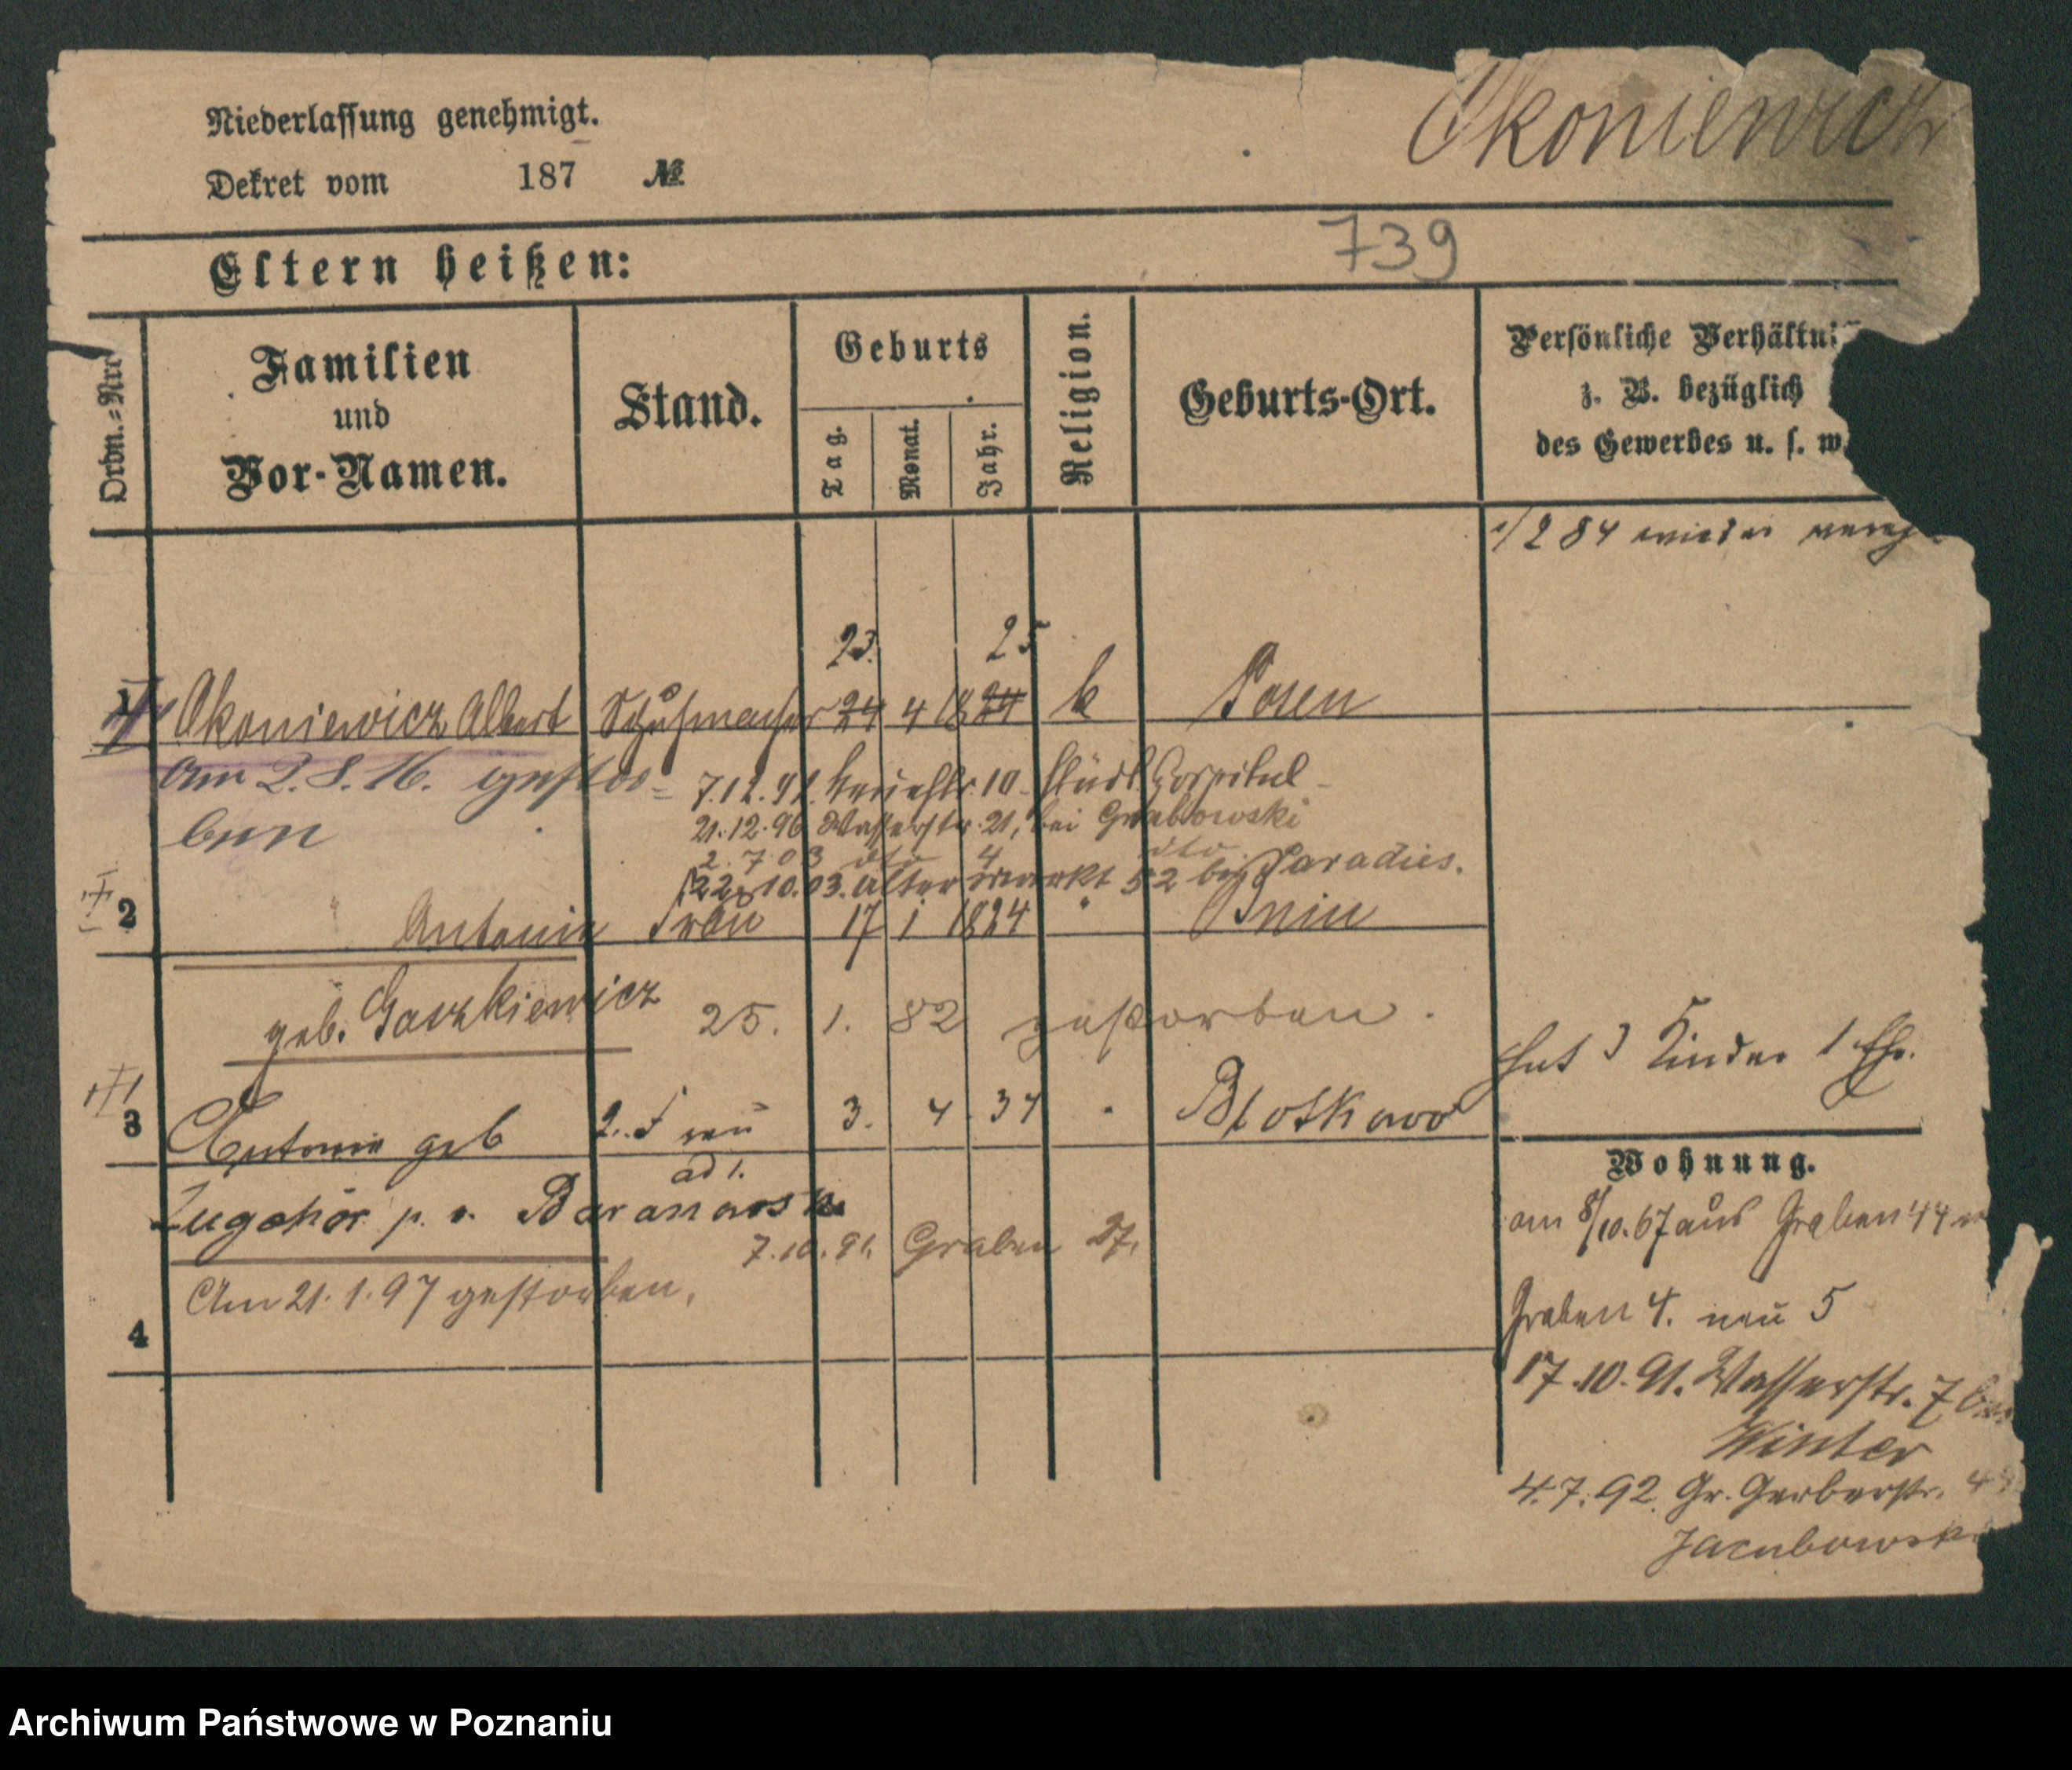 Okoniewicz
Niederlassung genehmigt.
Dekret vom 187 №
739
Eltern heißen:
Ordn.=Nro
Familien
und
Vor-Namen.
Stand.
Geburts
Tag.
Monat.
Jahr.
Religion.
Geburts-Ort.
Persönliche Verhältni
z. B. bezüglich
des Gewerbes u. s. w.
1/2 84 wieder
23. 25
1 Okoniewicz Albert Schuhmacher 24 4 1824 k Posen
Am 2.8.16. gestor=
ben
7.12.91. 10 städt. Hospital
21.12.96 Wasserstr. 21, bei Grabowski
2. 7 03 dto 4 dto
22.10.03. Alter Markt 52 bei Paradies.
2 Antonie Frau 17 1 1824 " Bnin
geb. 25. 1. 82 gestorben.
hat 3 Kinder 1 Ehe.
3 Antonie geb 2. Frau 3. 4 37 "
ad 1.
Zugehör p. v. Baranowska
7.10.91. Graben 27.
Am 21.1.97 gestorben.
4
Wohnung.
am 8/10.67 aus Graben 44 n
Graben 4. neu 5
17.10.91. Wasserstr. 7 bei
Winter
4.7.92. Gr. Gerberstr. 4
Jacubowsk
Archiwum Państwowe w Poznaniu